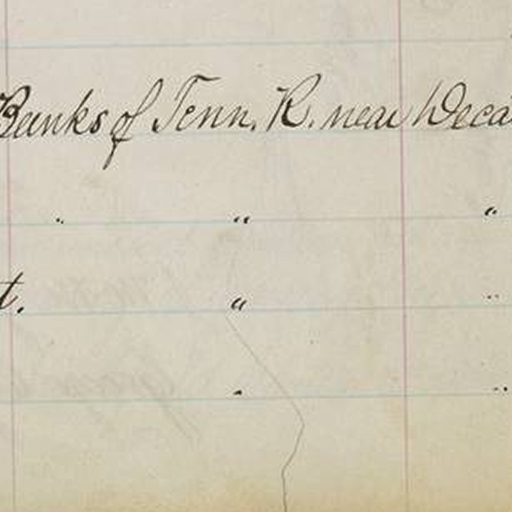 Banks of Tenn. R. near Deca
" " "
t. " "
" "